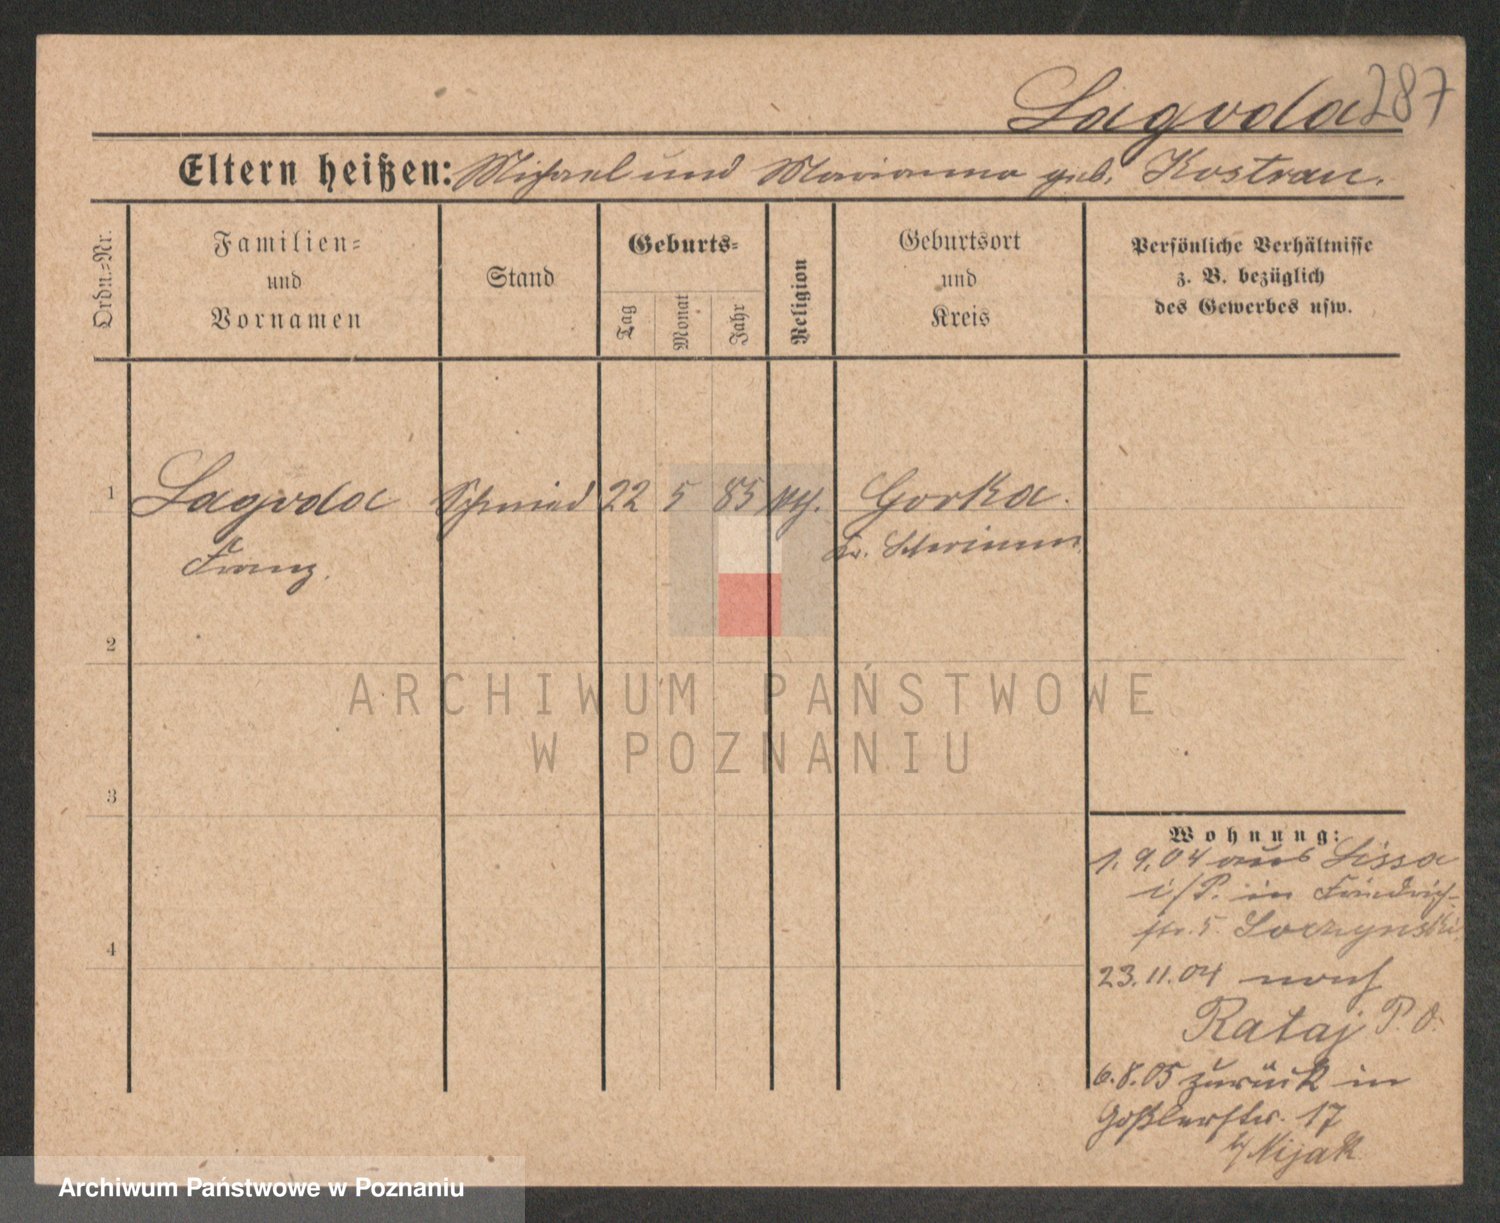 Lagoda 287
Eltern heißen: Michael und Marianna geb. Kostrau.
Ordn.-Nr.
Familien-
und
Vornamen
Stand
Geburts-
Tag
Monat
Jahr
Religion
Geburtsort
und
Kreis
Persönliche Verhältnisse
z. B. bezüglich
des Gewerbes usw.
1 Lagoda Schmied 22 5 85 Gorka.
Franz. Kr. Schrimm
2
3
4
Wohnung:
1.9.04 aus Lissa
i/P. in Friedrich-
str. 5 Loczynski
23.11.04 nach
Rataj P. O.
6.8.05 zurück in
Goßlerstr. 17
b/ Nijak
ARCHIWUM PAŃSTWOWE
W POZNANIU
Archiwum Państwowe w Poznaniu